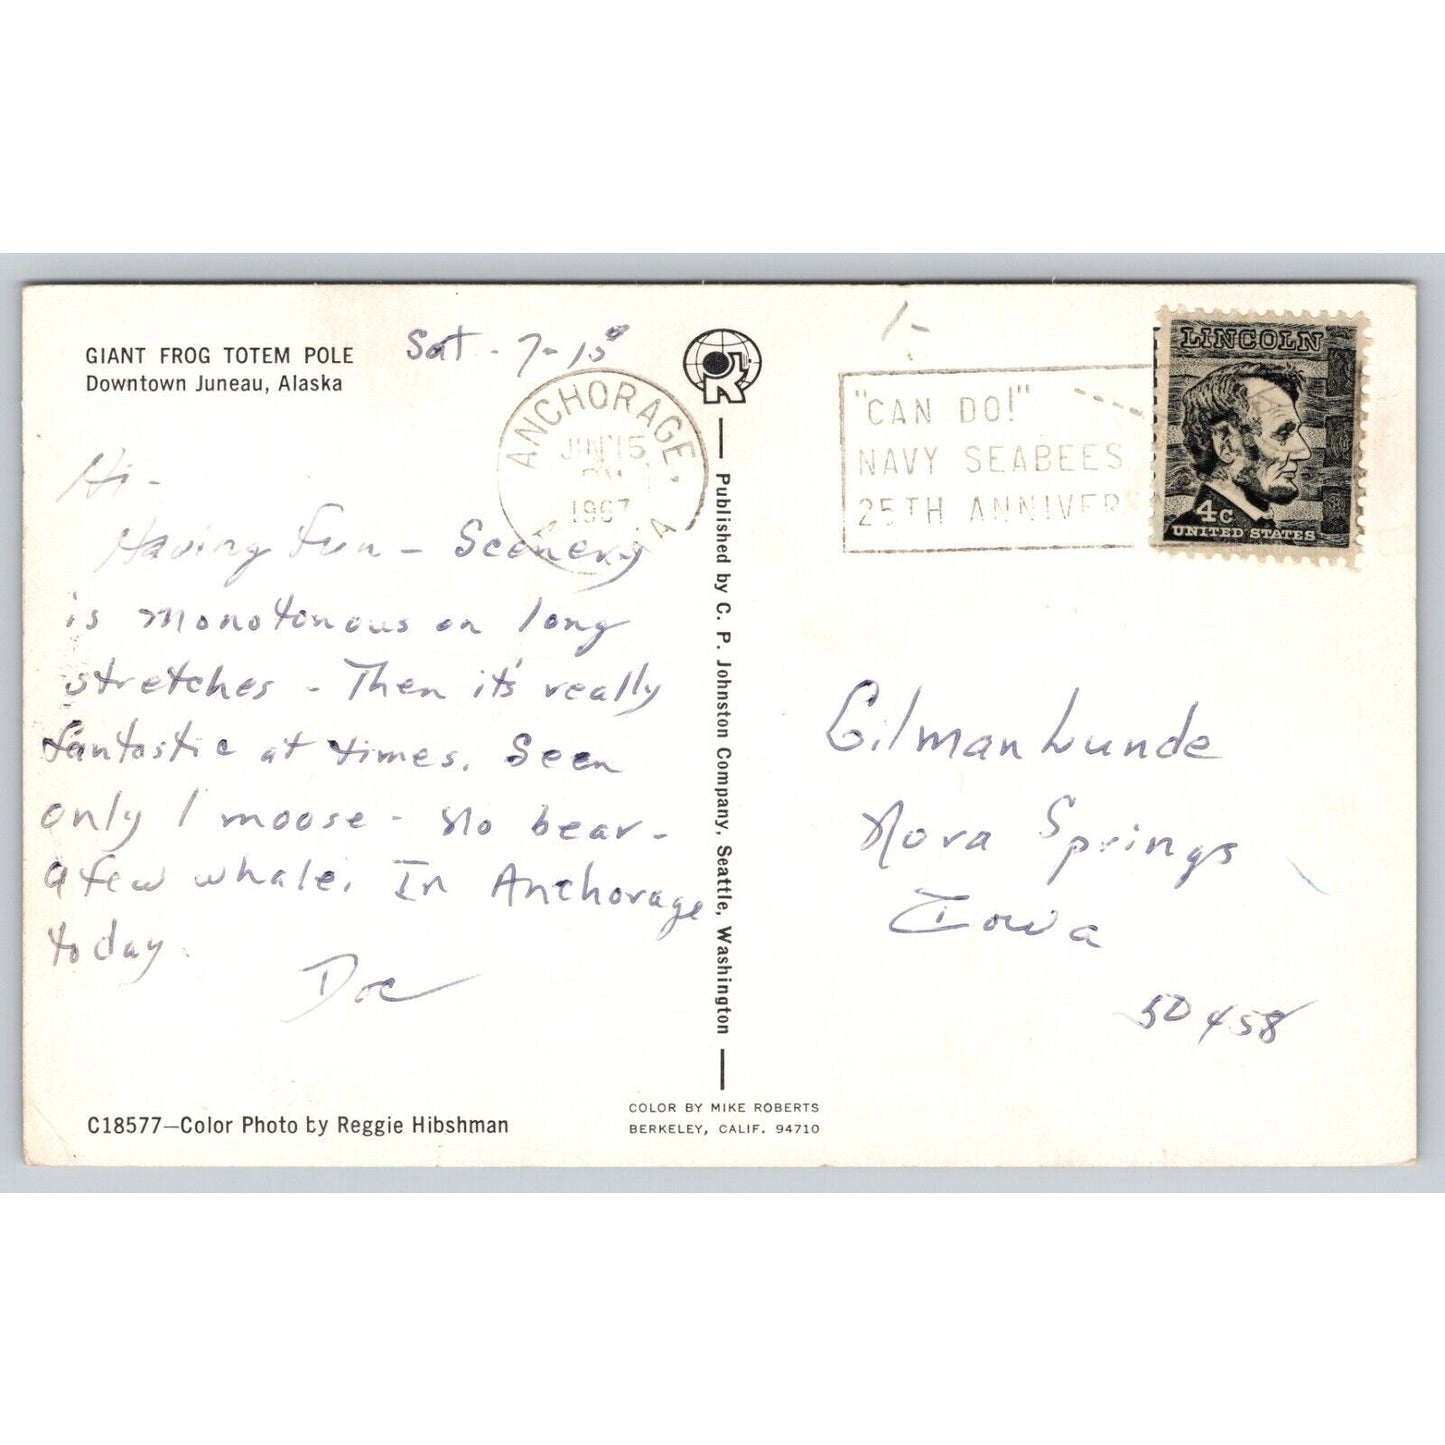 GIANT FROG TOTEM POLE
Downtown Juneau, Alaska
Sat. 7-15
Hi-
Having fun - Scenery
is monotonous on long
stretches - Then it's really
fantastic at times. Seen
only 1 moose - No bear -
a few whale. In Anchorage
today.
Doc
C18577—Color Photo by Reggie Hibshman
ANCHORAGE,
15
PM
1967
Published by C. P. Johnston Company, Seattle, Washington
COLOR BY MIKE ROBERTS
BERKELEY, CALIF. 94710
"CAN DO!"
NAVY SEABEES
25TH ANNIVER
LINCOLN
4c
UNITED STATES
Gilman Lunde
Nora Springs
Iowa
50458